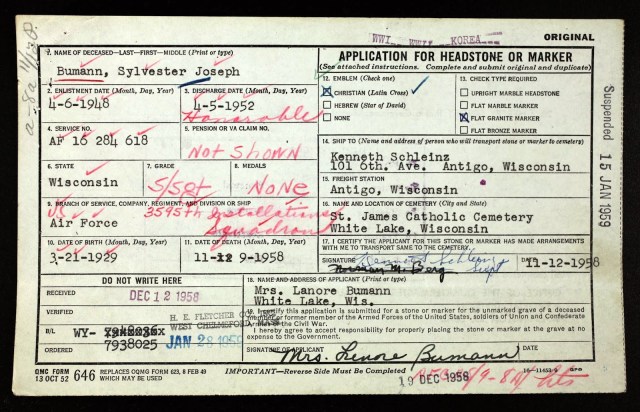 WWI WWII KOREA
ORIGINAL
1. NAME OF DECEASED—LAST—FIRST—MIDDLE (Print or type)
Bumann, Sylvester Joseph
APPLICATION FOR HEADSTONE OR MARKER
(See attached instructions. Complete and submit original and duplicate)
2. ENLISTMENT DATE (Month, Day, Year)
4-6-1948
3. DISCHARGE DATE (Month, Day, Year)
4-5-1952
Honorable
12. EMBLEM (Check one)
CHRISTIAN (Latin Cross)
HEBREW (Star of David)
NONE
13. CHECK TYPE REQUIRED
UPRIGHT MARBLE HEADSTONE
FLAT MARBLE MARKER
FLAT GRANITE MARKER
FLAT BRONZE MARKER
4. SERVICE NO.
AF 16 284 618
5. PENSION OR VA CLAIM NO.
Not Shown
14. SHIP TO (Name and address of person who will transport stone or marker to cemetery)
Kenneth Schleinz
101 6th. Ave. Antigo, Wisconsin
6. STATE
Wisconsin
7. GRADE
S/Sgt
8. MEDALS
None
15. FREIGHT STATION
Antigo, Wisconsin
9. BRANCH OF SERVICE, COMPANY, REGIMENT, DIVISION OR SHIP
US
Air Force
3595th Installations
Squadron
16. NAME AND LOCATION OF CEMETERY (City and State)
St. James Catholic Cemetery
White Lake, Wisconsin
10. DATE OF BIRTH (Month, Day, Year)
3-21-1929
11. DATE OF DEATH (Month, Day, Year)
9-1958
17. I CERTIFY THE APPLICANT FOR THIS STONE OR MARKER HAS MADE ARRANGEMENTS WITH ME TO TRANSPORT SAME TO THE CEMETERY.
SIGNATURE
Kenneth Schleinz
Norman M. Berg
Supt
11-12-1958
DO NOT WRITE HERE
RECEIVED
DEC 12 1958
VERIFIED
H. E. FLETCHER CO.
WEST CHELMSFORD, MASS.
B/L
WY-
7938025
JAN 28 1959
ORDERED
18. NAME AND ADDRESS OF APPLICANT (Print or type)
Mrs. Lanore Bumann
White Lake, Wis.
I certify this application is submitted for a stone or marker for the unmarked grave of a deceased member or former member of the Armed Forces of the United States, soldiers of Union and Confederate Armies of the Civil War.
I hereby agree to accept responsibility for properly placing the stone or marker at the grave at no expense to the Government.
SIGNATURE OF APPLICANT
Mrs. Lenore Bumann
19 DEC 1958
QMC FORM
13 OCT 52
646
REPLACES OQMG FORM 623, 8 FEB 49
WHICH MAY BE USED.
IMPORTANT—Reverse Side Must be Completed
16—11453-9 GPO
Suspended 15 JAN 1959